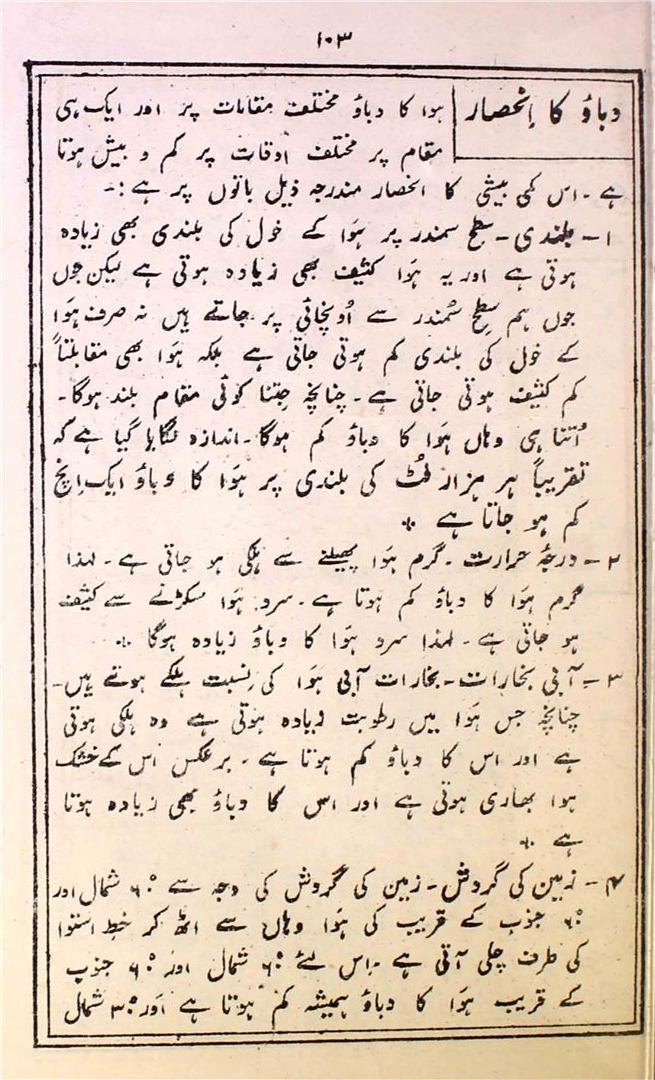 ۱۰۳
دباؤ کا اِنحصار
ہوا کا دباؤ مختلف مقامات پر اور ایک ہی
مقام پر مختلف اوقات پر کم و بیش ہوتا
ہے۔ اس کمی بیشی کا انحصار مندرجہ ذیل باتوں پر ہے :۔
۱۔ بلندی۔ سطح سمندر پر ہَوا کے خول کی بلندی بھی زیادہ
ہوتی ہے اور یہ ہَوا کثیف بھی زیادہ ہوتی ہے لیکن جوں
جوں ہم سطح سُمندر سے اُونچائی پر جاتے ہیں نہ صرف ہَوا
کے خول کی بلندی کم ہوتی جاتی ہے بلکہ ہَوا بھی مقابلتاً
کم کثیف ہوتی جاتی ہے۔ چنانچہ جِتنا کوئی مقام بلند ہوگا۔
اُتنا ہی وہاں ہَوا کا دباؤ کم ہوگا۔ اندازہ لگایا گیا ہے کہ
تقریباً ہر ہزار فُٹ کی بلندی پر ہَوا کا دباؤ ایک اِنچ
کم ہو جاتا ہے ٭
۲۔ درجۂ حرارت۔ گرم ہَوا پھیلنے سے ہلکی ہو جاتی ہے۔ لہٰذا
گرم ہَوا کا دباؤ کم ہوتا ہے۔ سرد ہَوا سکڑنے سے کثیف
ہو جاتی ہے۔ لہٰذا سرد ہَوا کا دباؤ زیادہ ہوگا ٭
۳۔ آبی بخارات۔ بخارات آبی ہَوا کی نِسبت ہلکے ہوتے ہیں۔
چنانچہ جس ہَوا میں رطوبت زیادہ ہوتی ہے وہ ہلکی ہوتی
ہے اور اس کا دباؤ کم ہوتا ہے۔ برعکس اس کے خشک
ہوا بھاری ہوتی ہے اور اس کا دباؤ بھی زیادہ ہوتا
ہے ٭
۴۔ زمین کی گردش۔ زمین کی گردش کی وجہ سے ۶۰° شمال اور
۶۰° جنوب کے قریب کی ہَوا وہاں سے اٹھ کر خط استوا
کی طرف چلی آتی ہے۔ اِس لئے ۶۰° شمال اور ۶۰° جنوب
کے قریب ہَوا کا دباؤ ہمیشہ کم ہوتا ہے اور ۳۰° شمال